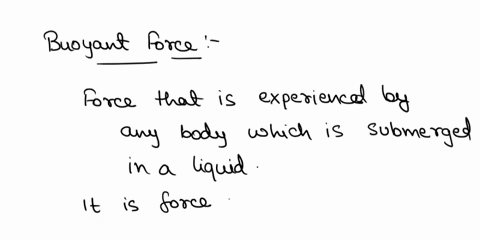 Buoyant Force :-
Force that is experienced by
any body which is submerged
in a liquid.
It is force